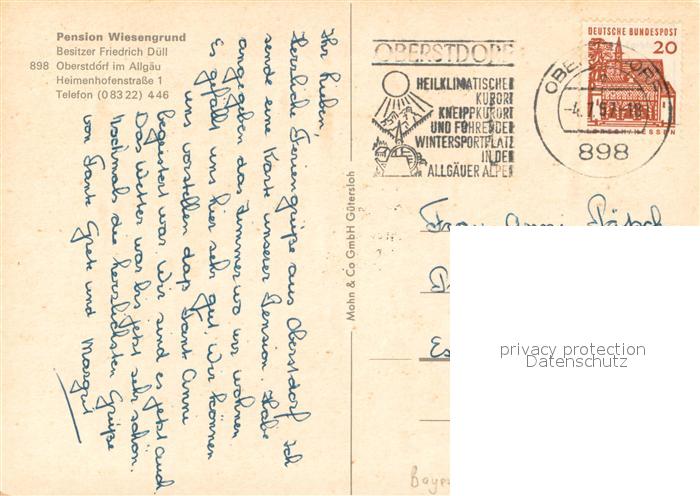 Pension Wiesengrund
Besitzer Friedrich Düll
898 Oberstdorf im Allgäu
Heimenhofenstraße 1
Telefon (0 83 22) 4 46
Ihr Lieben,
herzliche Feriengrüße aus Oberstdorf. Ich
sende eine Karte unserer Pension. Habe
angegeben das Zimmer wo wir wohnen
Es gefällt uns hier sehr gut. Wir können
uns vorstellen daß Tant Anni
begeistert war. Wir sind es jetzt auch.
Das Wetter war bis jetzt sehr schön.
Nochmals die herzlichsten Grüße
von Tante Grete und Margrit
Mohn & Co GmbH Gütersloh
OBERSTDORF
HEILKLIMATISCHER
KURORT
KNEIPPKURORT
UND FÜHRENDER
WINTERSPORTPLATZ
IN DEN
ALLGÄUER ALPEN
DEUTSCHE BUNDESPOST
20
LORSCH/HESSEN
OBERSTDORF
898
Frau Anni
privacy protection
Datenschutz
Baye